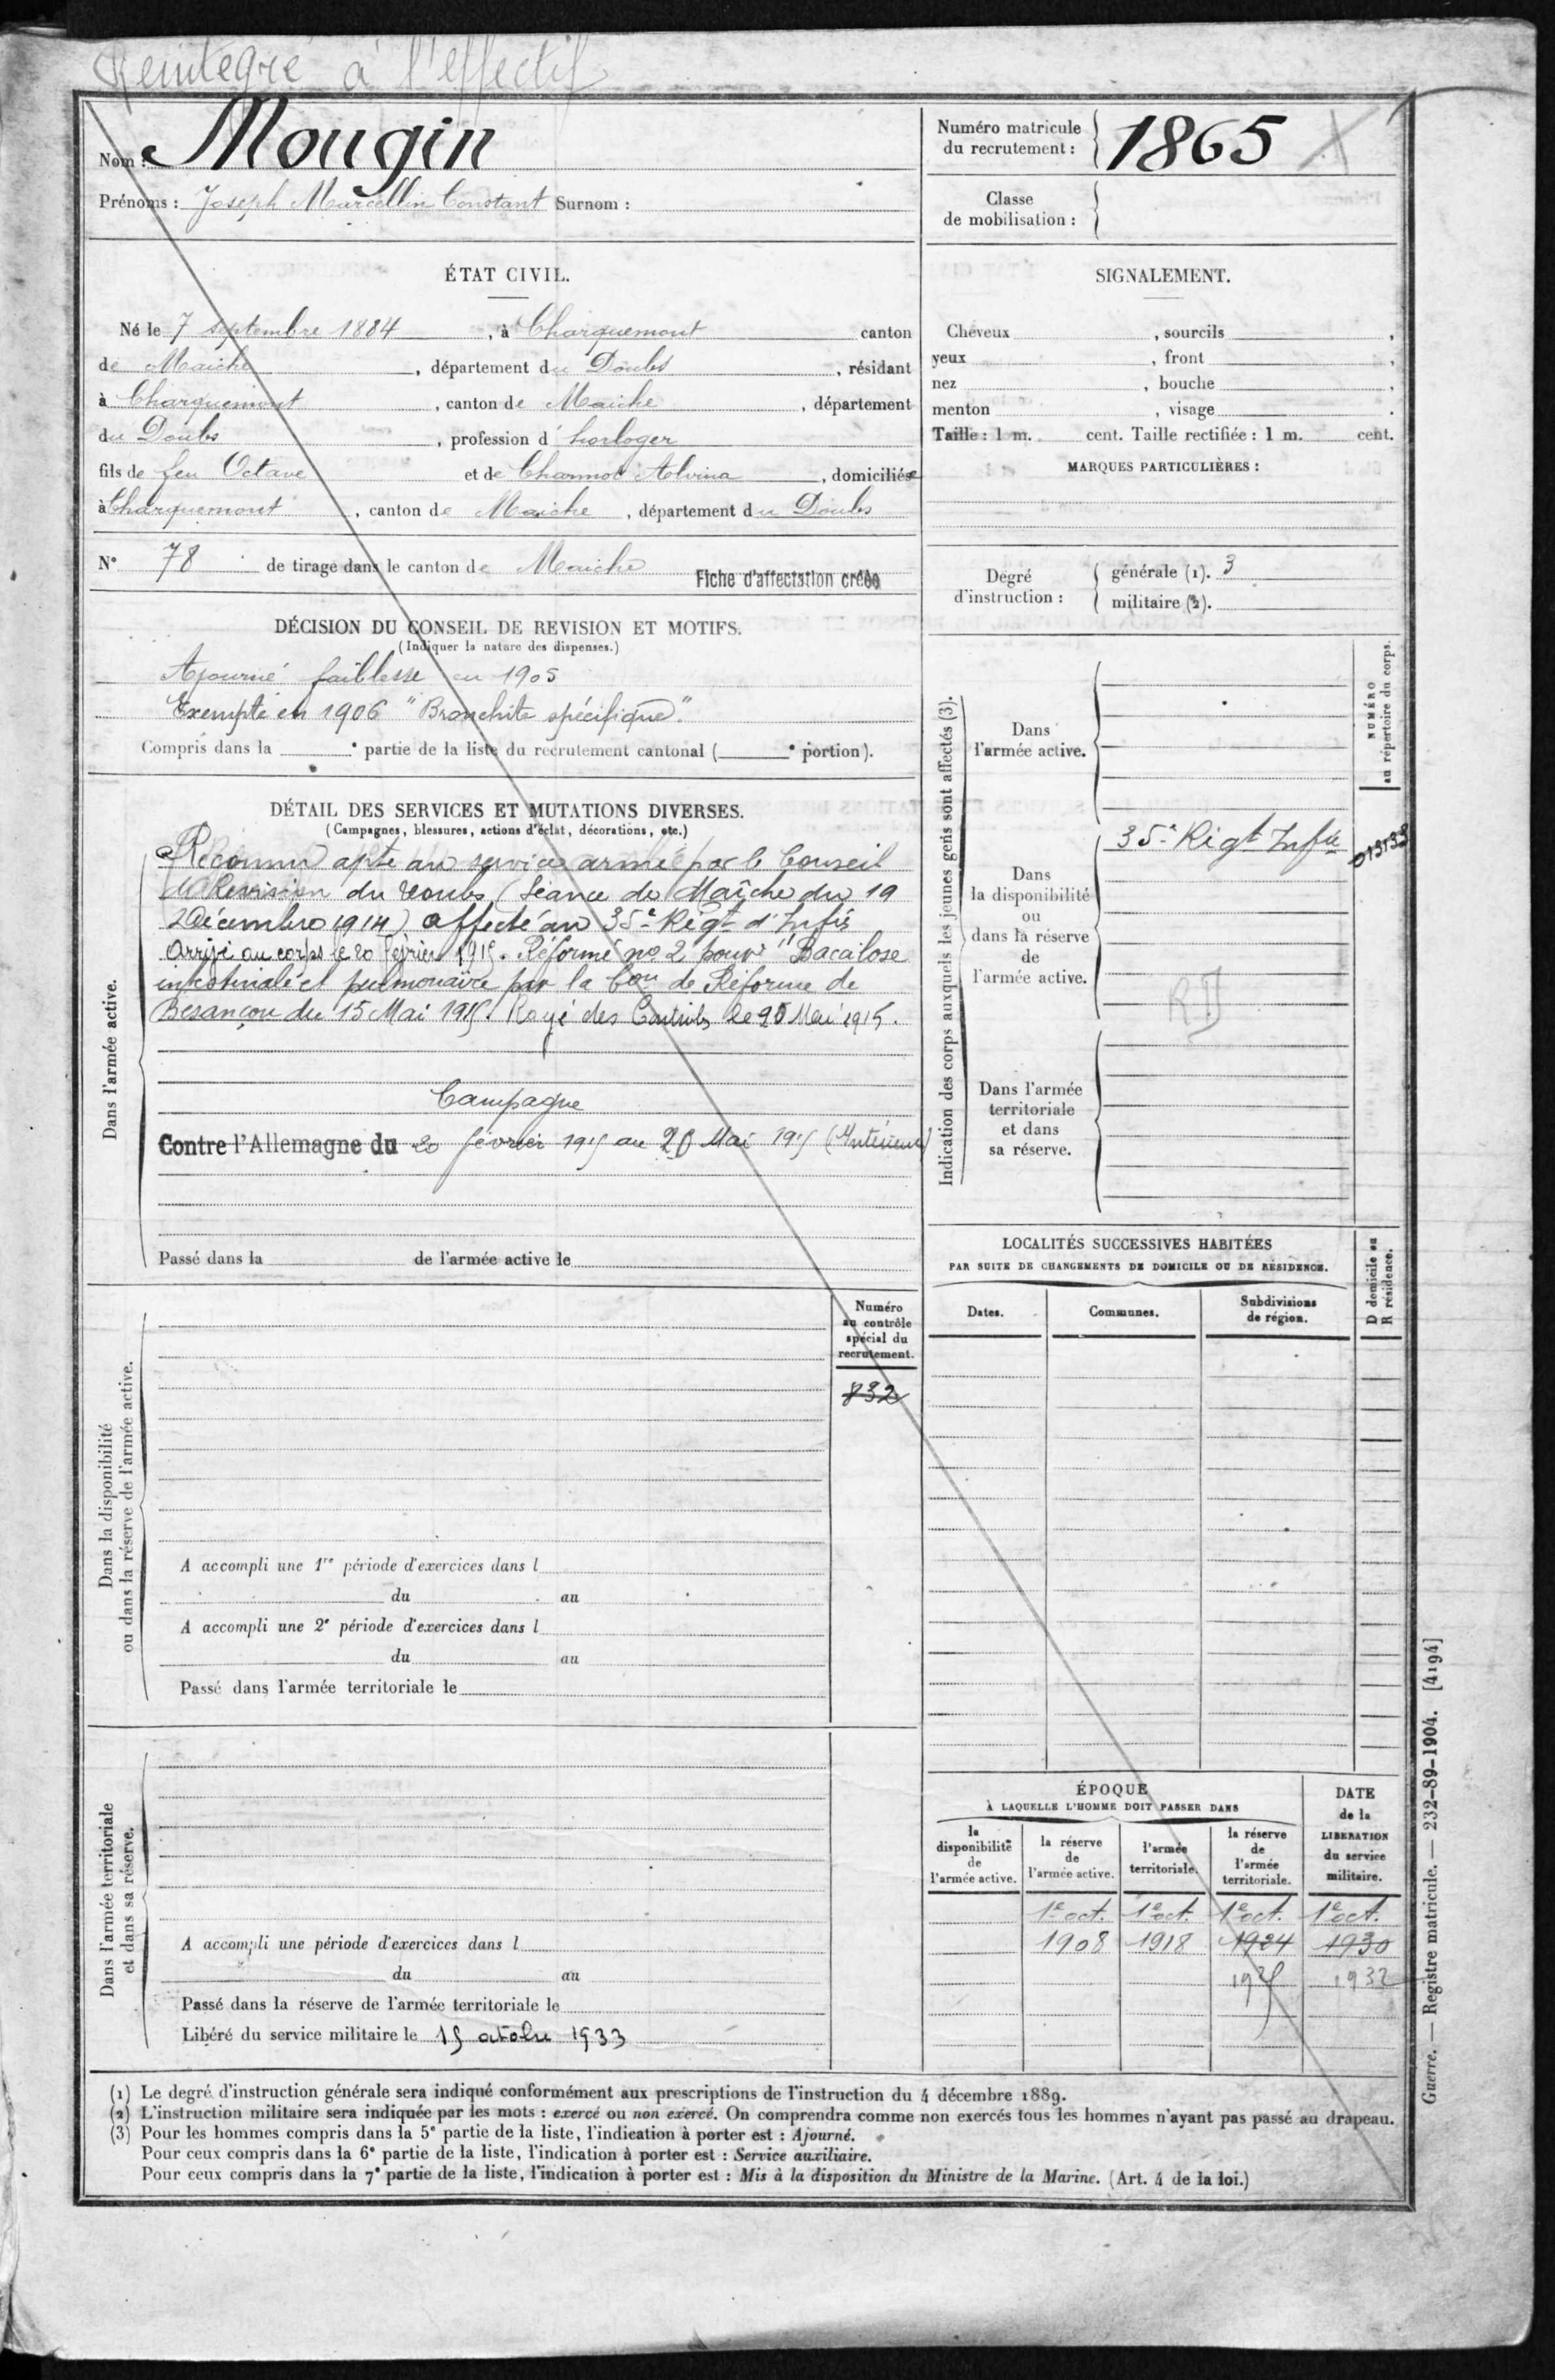 Réintégré à l'effectif
Nom : Mougin
Prénoms : Joseph Marcellin Constant Surnom :
Numéro matricule du recrutement : 1865
Classe de mobilisation :
ÉTAT CIVIL.
Né le 7 septembre 1884, à Charquemont canton
de Maiche, département du Doubs, résidant
à Charquemont, canton de Maiche, département
du Doubs, profession d'horloger
fils de feu Octave et de Charmot Alvina, domiciliée
à Charquemont, canton de Maiche, département du Doubs
N° 78 de tirage dans le canton de Maiche Fiche d'affectation créée
SIGNALEMENT.
Cheveux , sourcils ,
yeux , front ,
nez , bouche ,
menton , visage .
Taille : 1 m. cent. Taille rectifiée : 1 m. cent.
MARQUES PARTICULIÈRES :
Degré d'instruction :
générale (1). 3
militaire (2).
DÉCISION DU CONSEIL DE REVISION ET MOTIFS.
(Indiquer la nature des dispenses.)
Ajourné faiblesse en 1905
Exempté en 1906 "Bronchite spécifique".
Compris dans la e partie de la liste du recrutement cantonal ( e portion).
DÉTAIL DES SERVICES ET MUTATIONS DIVERSES.
(Campagnes, blessures, actions d'éclat, décorations, etc.)
Dans l'armée active.
Reconnu apte au service armé par le Conseil
de Revision du Doubs (Séance de Maîche du 19
Décembre 1914) affecté au 35e Régt d'Infie
Arrivé au corps le 20 février 1915. Réformé no 2 pour "Bacillose
intestinale et pulmonaire par la Con de Réforme de
Besançon du 15 Mai 1915. Rayé des Contrôles le 20 Mai 1915.
Campagne
Contre l'Allemagne du 20 février 1915 au 20 Mai 1915 (Intérieur)
Passé dans la de l'armée active le
Indication des corps auxquels les jeunes gens sont affectés (3).
NUMÉRO au répertoire du corps.
Dans
l'armée active.
Dans
la disponibilité
ou
dans la réserve
de
l'armée active.
35e Régt Infie
RD
Dans l'armée
territoriale
et dans
sa réserve.
LOCALITÉS SUCCESSIVES HABITÉES
PAR SUITE DE CHANGEMENTS DE DOMICILE OU DE RÉSIDENCE.
Dates. Communes. Subdivisions de région.
D domicile ou R résidence.
Dans la disponibilité
ou dans la réserve de l'armée active.
Numéro
au contrôle
spécial du
recrutement.
832
A accompli une 1re période d'exercices dans l
du au
A accompli une 2e période d'exercices dans l
du au
Passé dans l'armée territoriale le
Dans l'armée territoriale
et dans sa réserve.
A accompli une période d'exercices dans l
du au
Passé dans la réserve de l'armée territoriale le
Libéré du service militaire le 15 octobre 1933
ÉPOQUE
À LAQUELLE L'HOMME DOIT PASSER DANS
la disponibilité de l'armée active.
la réserve de l'armée active.
l'armée territoriale.
la réserve de l'armée territoriale.
DATE de la LIBÉRATION du service militaire.
1e oct. 1e oct. 1e oct. 1e oct.
1908 1918 1924 1930
1932
(1) Le degré d'instruction générale sera indiqué conformément aux prescriptions de l'instruction du 4 décembre 1889.
(2) L'instruction militaire sera indiquée par les mots : exercé ou non exercé. On comprendra comme non exercés tous les hommes n'ayant pas passé au drapeau.
(3) Pour les hommes compris dans la 5e partie de la liste, l'indication à porter est : Ajourné.
Pour ceux compris dans la 6e partie de la liste, l'indication à porter est : Service auxiliaire.
Pour ceux compris dans la 7e partie de la liste, l'indication à porter est : Mis à la disposition du Ministre de la Marine. (Art. 4 de la loi.)
Guerre. — Registre matricule. — 232-89-1904. [4194]